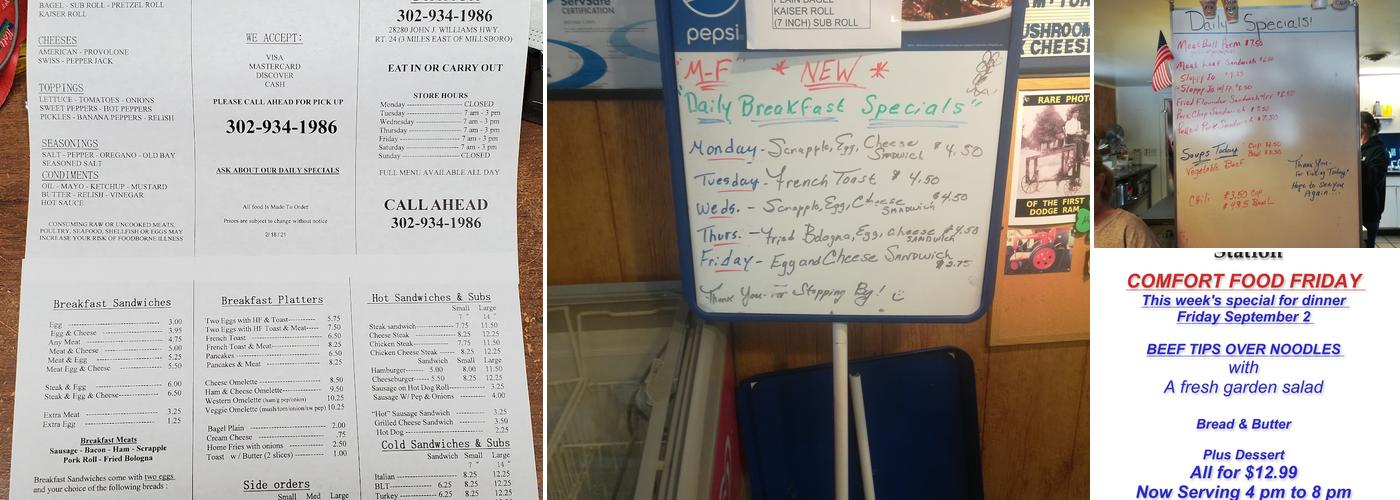 BAGEL - SUB ROLL - PRETZEL ROLL
KAISER ROLL
CHEESES
AMERICAN - PROVOLONE
SWISS - PEPPER JACK
TOPPINGS
LETTUCE - TOMATOES - ONIONS
SWEET PEPPERS - HOT PEPPERS
PICKLES - BANANA PEPPERS - RELISH
SEASONINGS
SALT - PEPPER - OREGANO - OLD BAY
SEASONED SALT
CONDIMENTS
OIL - MAYO - KETCHUP - MUSTARD
BUTTER - RELISH - VINEGAR
HOT SAUCE
CONSUMING RAW OR UNCOOKED MEATS,
POULTRY, SEAFOOD, SHELLFISH OR EGGS MAY
INCREASE YOUR RISK OF FOODBORNE ILLNESS
WE ACCEPT:
VISA
MASTERCARD
DISCOVER
CASH
PLEASE CALL AHEAD FOR PICK UP
302-934-1986
ASK ABOUT OUR DAILY SPECIALS
All food Is Made To Order
Prices are subject to change without notice
2/18/21
302-934-1986
28280 JOHN J. WILLIAMS HWY.
RT. 24 (3 MILES EAST OF MILLSBORO)
EAT IN OR CARRY OUT
STORE HOURS
Monday ---------------- CLOSED
Tuesday ---------------- 7 am - 3 pm
Wednesday ------------ 7 am - 3 pm
Thursday --------------- 7 am - 3 pm
Friday ------------------ 7 am - 3 pm
Saturday --------------- 7 am - 3 pm
Sunday ----------------- CLOSED
FULL MENU AVAILABLE ALL DAY
CALL AHEAD
302-934-1986
Breakfast Sandwiches
Egg ---------------------- 3.00
Egg & Cheese ---------------- 3.95
Any Meat ---------------- 4.75
Meat & Cheese ---------------- 5.00
Meat & Egg ---------------- 5.25
Meat Egg & Cheese ---------------- 5.50
Steak & Egg ---------------- 6.00
Steak & Egg & Cheese---------------- 6.50
Extra Meat ---------------- 3.25
Extra Egg ---------------- 1.25
Breakfast Meats
Sausage - Bacon - Ham - Scrapple
Pork Roll - Fried Bologna
Breakfast Sandwiches come with two eggs
and your choice of the following breads :
Breakfast Platters
Two Eggs with HF & Toast---------- 5.75
Two Eggs with HF Toast & Meat----- 7.50
French Toast ---------------- 6.50
French Toast & Meat---------------- 8.25
Pancakes ---------------- 6.50
Pancakes & Meat ---------------- 8.25
Cheese Omelette ---------------- 8.50
Ham & Cheese Omelette---------------- 9.50
Western Omelette (ham/g pep/onion) 10.25
Veggie Omelette (mush/tom/onion/sw pep) 10.25
Bagel Plain ---------------- 2.00
Cream Cheese ---------------- .75
Home Fries with onions ---------------- 2.50
Toast w / Butter (2 slices) ---------------- 1.00
Side orders
Small Med Large
Hot Sandwiches & Subs
Small Large
7 " 14 "
Steak sandwich---------- 7.75 11.50
Cheese Steak ---------- 8.25 12.25
Chicken Steak ---------- 7.75 11.50
Chicken Cheese Steak ----- 8.25 12.25
Sandwich Small Large
Hamburger------ 5.00 8.00 11.50
Cheeseburger----- 5.50 8.25 12.25
Sausage on Hot Dog Roll---------------- 3.25
Sausage W/ Pep & Onions ---------------- 4.00
"Hot" Sausage Sandwich ---------------- 3.25
Grilled Cheese Sandwich ---------------- 3.50
Hot Dog ---------------- 2.25
Cold Sandwiches & Subs
Sandwich Small Large
7 " 14 "
Italian ---------------- 8.25 12.25
BLT------------- 6.25 8.25 12.25
Turkey --------- 6.25
ServSafe
CERTIFICATION
pepsi
PLAIN BAGEL
KAISER ROLL
(7 INCH) SUB ROLL
USHROOM
CHEES
RARE PHOT
OF THE FIRST
DODGE RAM
"M-F" * NEW *
"Daily Breakfast Specials"
Monday - Scrapple, Egg, Cheese Sandwich $4.50
Tuesday - French Toast $4.50
Weds. - Scrapple, Egg, Cheese Sandwich $4.50
Thurs. - Fried Bologna, Egg, Cheese Sandwich $4.50
Friday - Egg and Cheese Sandwich $3.75
Thank You for Stopping By!
Daily Specials!
Meat Ball Parm $7.50
Meat Loaf Sandwich
Sloppy Jo
Fried Flounder Sandwich
Pork Chop Sandwich
Pulled Pork Sandwich $7.50
Soups Today
Vegetable Beef
Chili $3.50 Cup
$4.95 Bowl
Thank You
for Visiting Today!
Hope to See you
Again...
Station
COMFORT FOOD FRIDAY
This week's special for dinner
Friday September 2
BEEF TIPS OVER NOODLES
with
A fresh garden salad
Bread & Butter
Plus Dessert
All for $12.99
Now Serving 4 pm to 8 pm